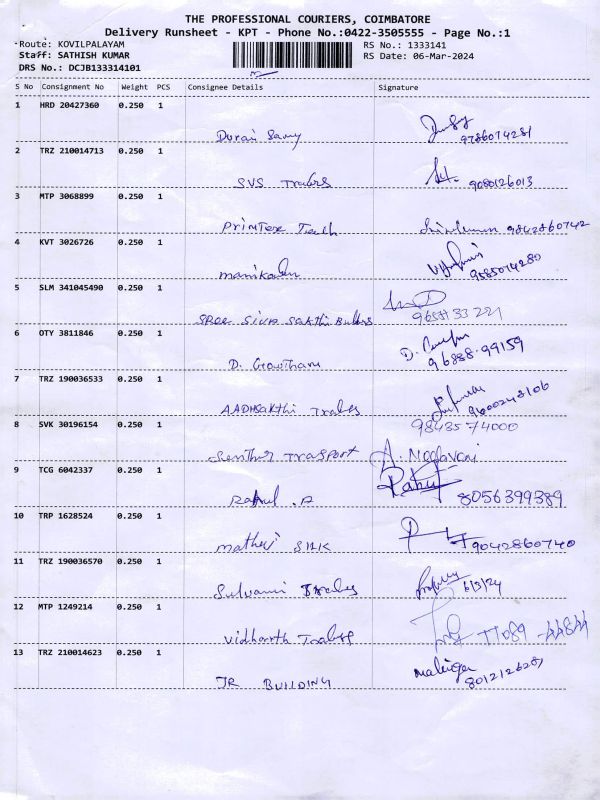 THE PROFESSIONAL COURIERS, COIMBATORE
Delivery Runsheet - KPT - Phone No.:0422-3505555 - Page No.:1
Route: KOVILPALAYAM RS No.: 1333141
Staff: SATHISH KUMAR RS Date: 06-Mar-2024
DRS No.: DCJB133314101
S No Consignment No Weight PCS Consignee Details Signature
1 HRD 20427360 0.250 1
Durai Samy 9786074281
2 TRZ 210014713 0.250 1
SVS Traders 9080126013
3 MTP 3068899 0.250 1
Printex Tech 9842860742
4 KVT 3026726 0.250 1
manikandan 9585074280
5 SLM 341045490 0.250 1
SREE SIVA Sakthi Builders
6 OTY 3811846 0.250 1
D. Gowtham D. 96888-99159
7 TRZ 190036533 0.250 1
AADHSakthi Trades 9600248106
8 SVK 30196154 0.250 1 9843574000
Senthur TRANSPORT A.
9 TCG 6042337 0.250 1
Rahul .A Rahul 8056399389
10 TRP 1628524 0.250 1
mathevi SILK 9042860740
11 TRZ 190036570 0.250 1
Selvami Trades 6/3/24
12 MTP 1249214 0.250 1
Vidharth Trades
13 TRZ 210014623 0.250 1
JR BUILDING